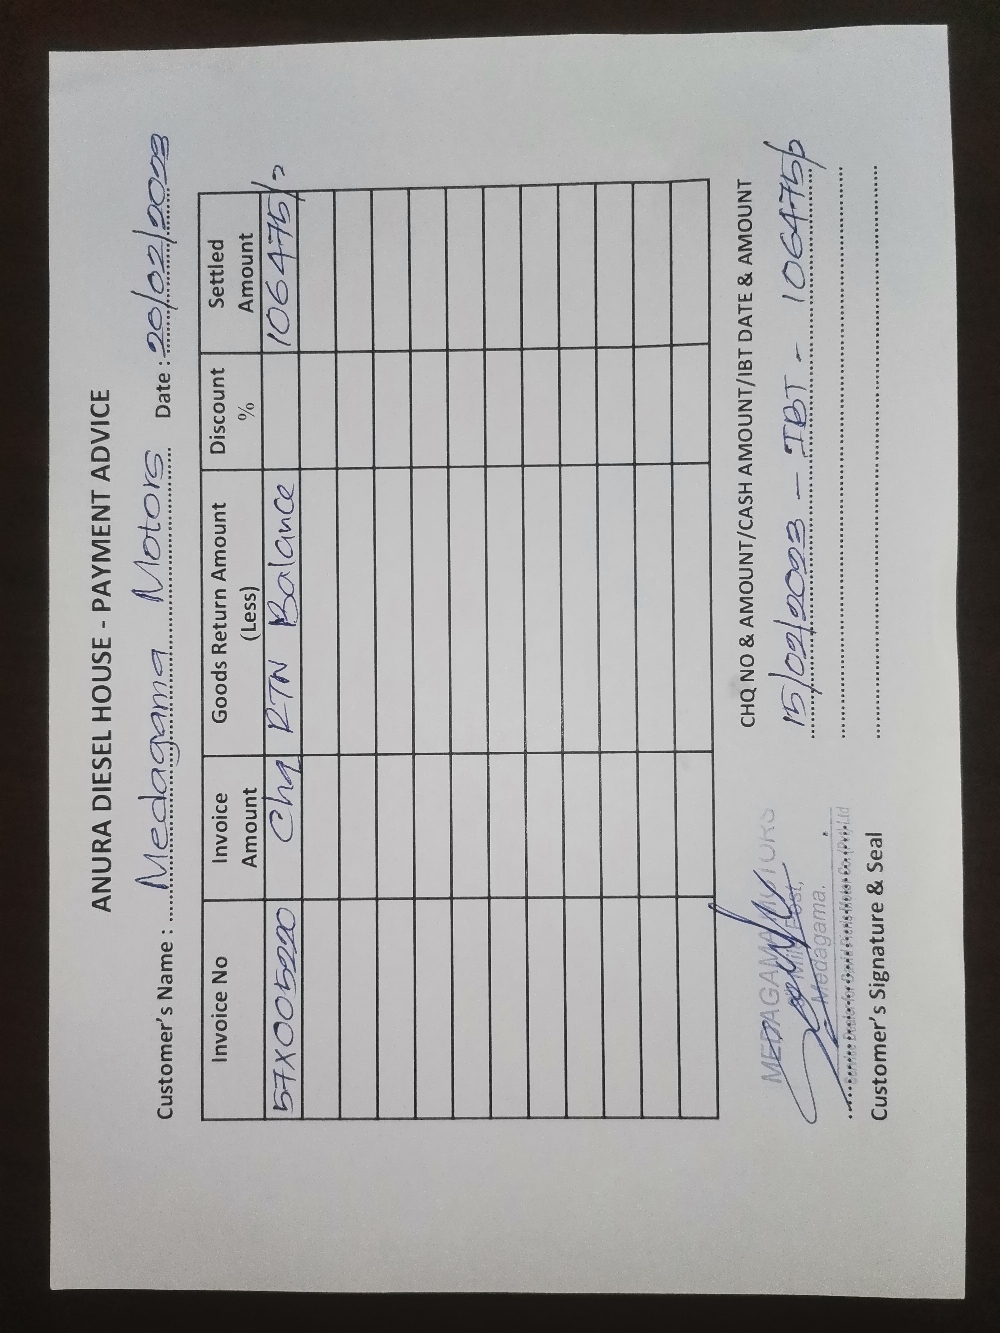 ANURA DIESEL HOUSE - PAYMENT ADVICE
Customer's Name : Medagama Motors Date : 20/02/2023
Invoice No Invoice Amount Goods Return Amount (Less) Discount % Settled Amount
57X005220 Chq RTN Balance 106475/=
CHQ NO & AMOUNT/CASH AMOUNT/IBT DATE & AMOUNT
15/02/2023 - IBT - 106475/=
MEDAGAMA MOTORS
Mile Post,
Medagama.
Customer's Signature & Seal